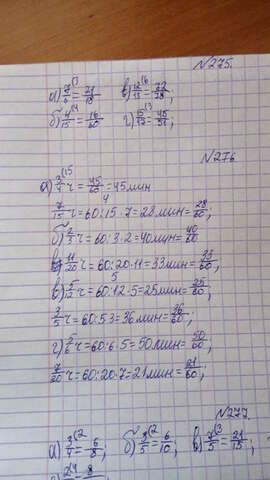 N275.
а) 7/6 = 21/18 в) 12/13 = 72/78;
б) 4/15 = 16/60 г) 15/17 = 45/51;
N276
а) 3/4 ч = 45/60 = 45 мин
7/15 ч = 60:15·7 = 28 мин = 28/60;
б) 2/3 ч = 60:3·2 = 40 мин = 40/60
11/20 ч = 60:20·11 = 33 мин = 33/60;
в) 5/12 ч = 60:12·5 = 25 мин = 25/60;
3/5 ч = 60:5·3 = 36 мин = 36/60;
г) 5/6 ч = 60:6·5 = 50 мин = 50/60
7/20 ч = 60:20·7 = 21 мин = 21/60;
N277
а) 3/4 = 6/8; б) 3/5 = 6/10; в) 7/5 = 21/15;